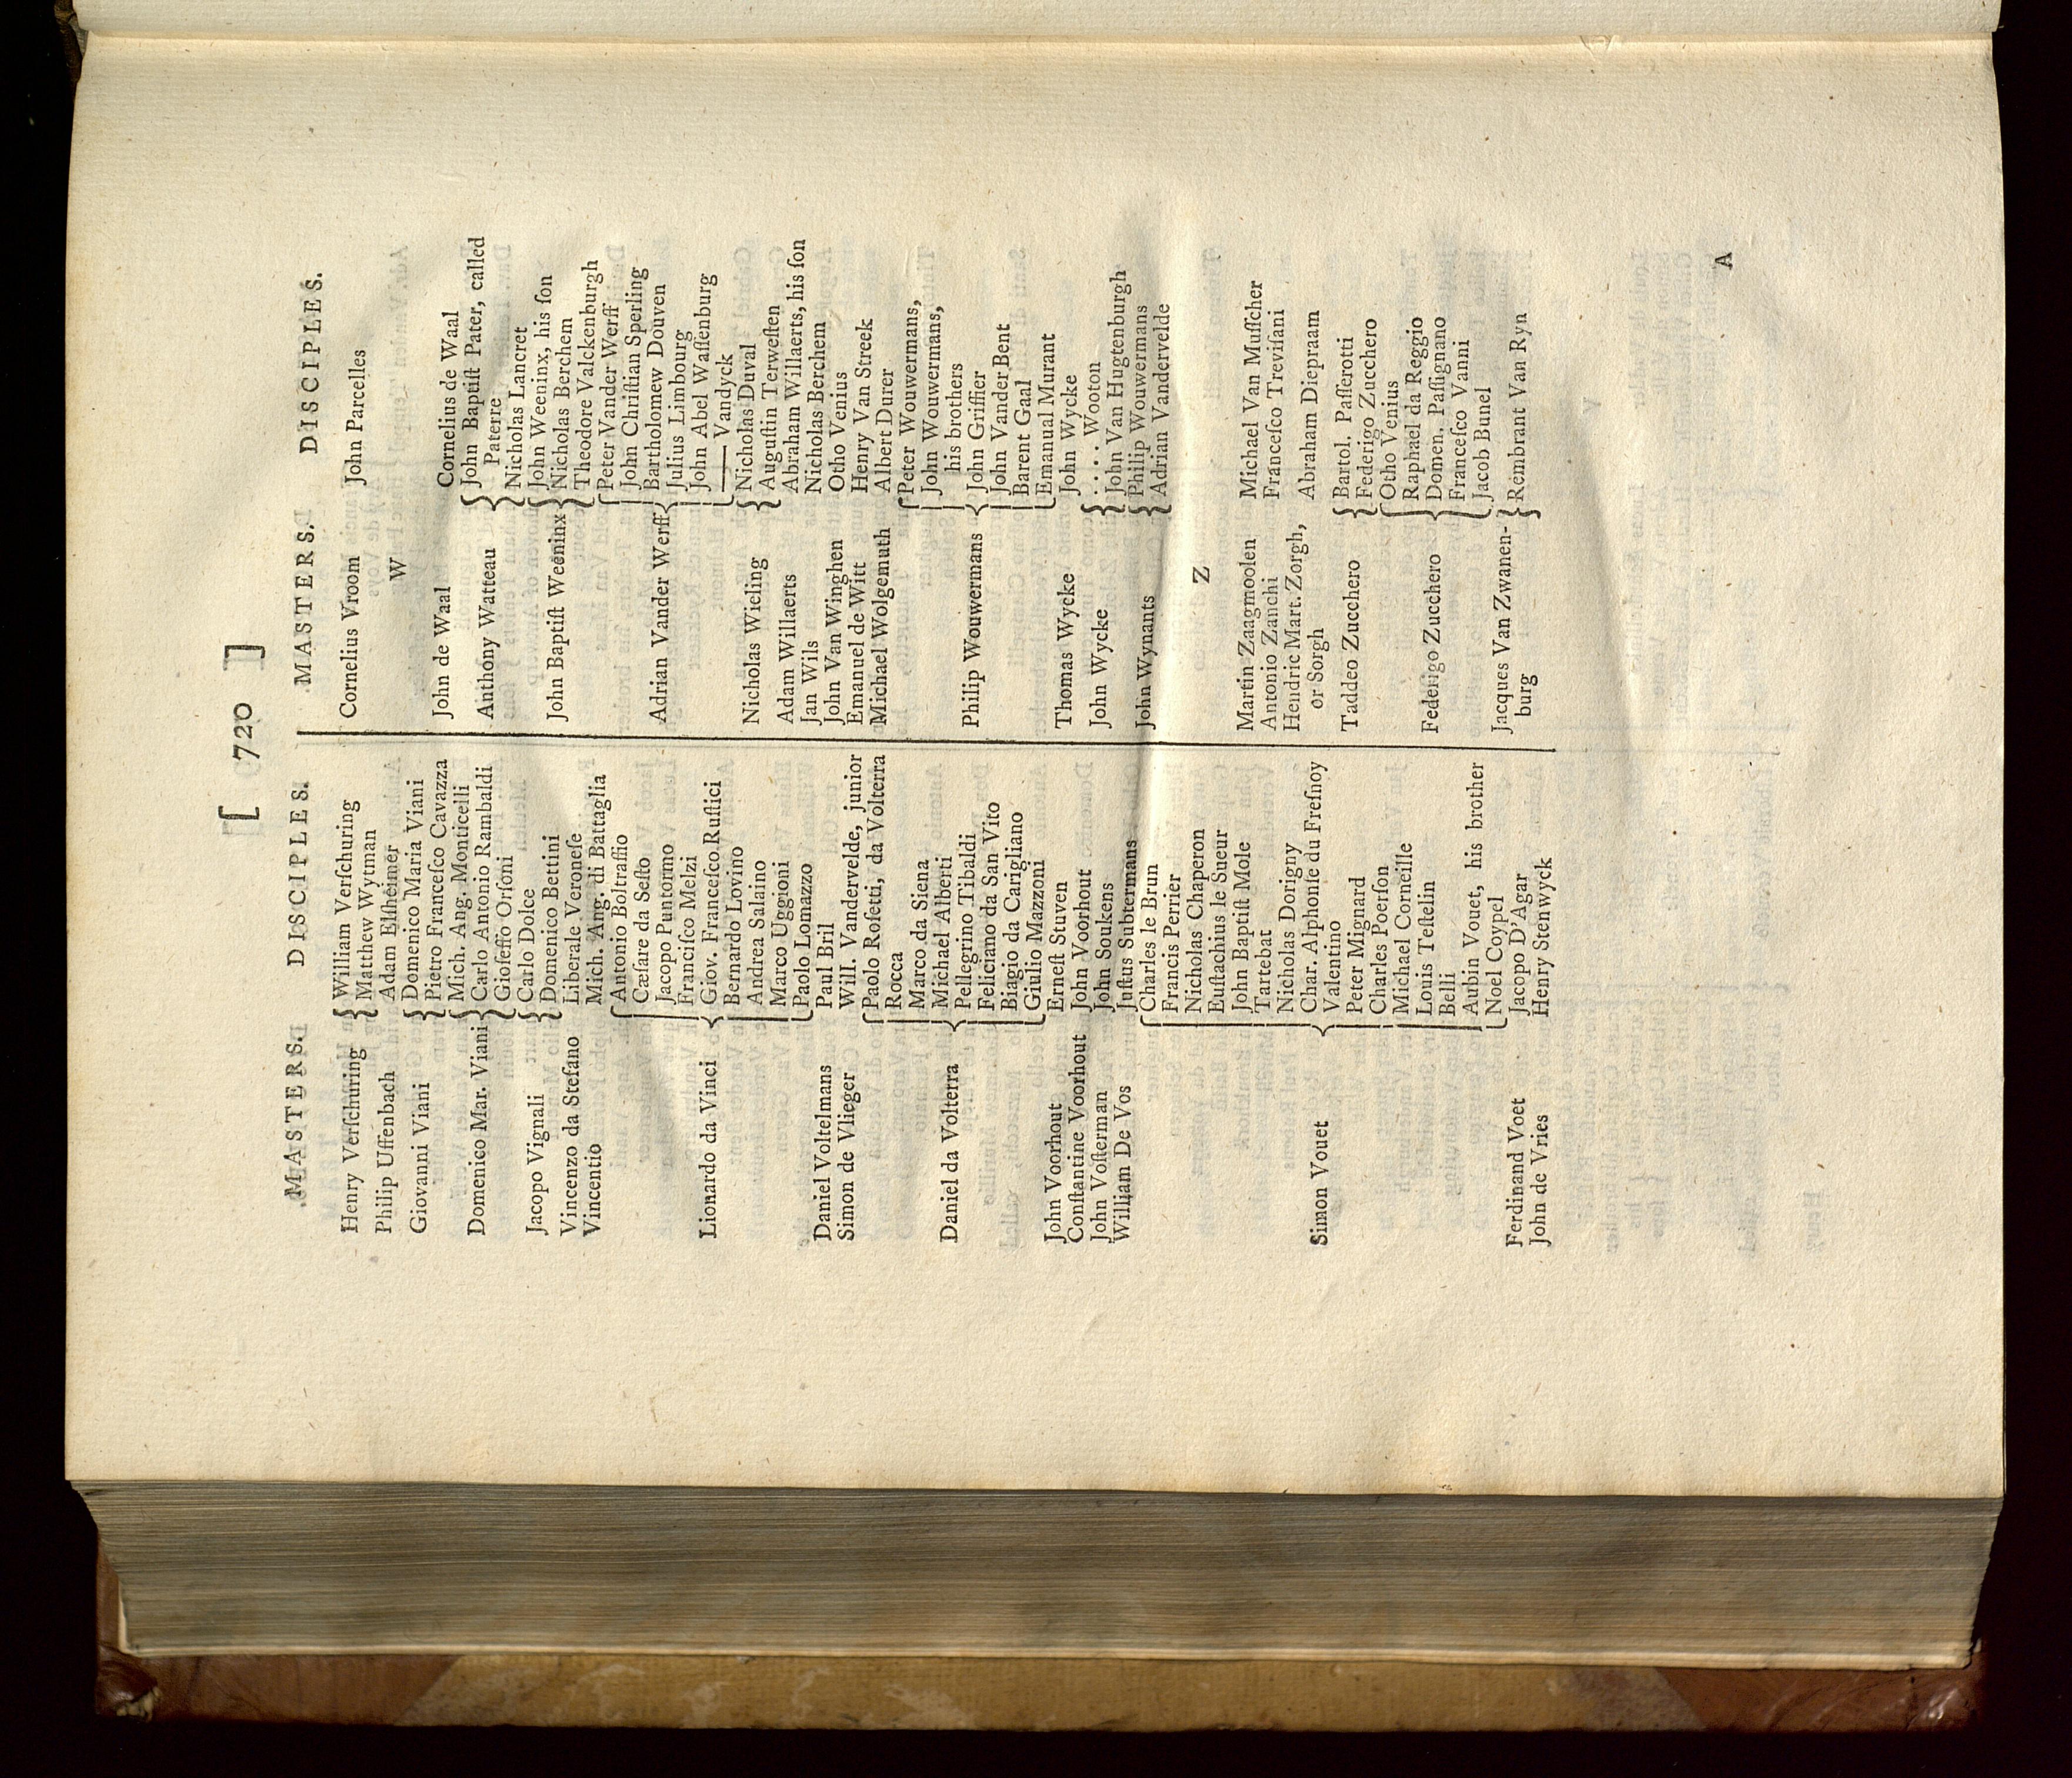 [ 720 ]
MASTERS. DISCIPLES.
Henry Verſchuring { William Verſchuring
Matthew Wytman
Philip Uffenbach Adam Elſheimer
Giovanni Viani { Domenico Maria Viani
Pietro Franceſco Cavazza
Domenico Mar. Viani { Mich. Ang. Monticelli
Carlo Antonio Rambaldi
Gioſeffo Orſoni
Jacopo Vignali { Carlo Dolce
Domenico Bettini
Vincenzo da Stefano Liberale Veroneſe
Vincentio Mich. Ang. di Battaglia
Lionardo da Vinci { Antonio Boltraffio
Cæſare da Seſto
Jacopo Puntormo
Franciſco Melzi
Giov. Franceſco Ruſtici
Bernardo Lovino
Andrea Salaino
Marco Uggioni
Paolo Lomazzo
Daniel Voltelmans Paul Bril
Simon de Vlieger Will. Vandervelde, junior
Daniel da Volterra { Paolo Roſetti, da Volterra
Rocca
Marco da Siena
Michael Alberti
Pellegrino Tibaldi
Feliciano da San Vito
Biagio da Carigliano
Giulio Mazzoni
John Voorhout Erneſt Stuven
Conſtantine Voorhout John Voorhout
John Voſterman John Soukens
William De Vos Juſtus Subtermans
Simon Vouet { Charles le Brun
Francis Perrier
Nicholas Chaperon
Euſtachius le Sueur
John Baptiſt Mole
Tartebat
Nicholas Dorigny
Char. Alphonſe du Freſnoy
Valentino
Peter Mignard
Charles Poerſon
Michael Corneille
Louis Teſtelin
Belli
Aubin Vouet, his brother
Noel Coypel
Ferdinand Voet Jacopo D'Agar
John de Vries Henry Stenwyck
MASTERS. DISCIPLES.
Cornelius Vroom John Parcelles
W
John de Waal Cornelius de Waal
Anthony Watteau { John Baptiſt Pater, called
Paterre
Nicholas Lancret
John Baptiſt Weeninx { John Weeninx, his ſon
Nicholas Berchem
Theodore Valckenburgh
Adrian Vander Werff { Peter Vander Werff
John Chriſtian Sperling
Bartholomew Douven
Julius Limbourg
John Abel Waſſenburg
—— Vandyck
Nicholas Wieling { Nicholas Duval
Auguſtin Terweſten
Adam Willaerts Abraham Willaerts, his ſon
Jan Wils Nicholas Berchem
John Van Winghen Otho Venius
Emanuel de Witt Henry Van Streek
Michael Wolgemuth Albert Durer
Philip Wouwermans { Peter Wouwermans,
John Wouwermans,
his brothers
John Griffier
John Vander Bent
Barent Gaal
Emanual Murant
Thomas Wycke John Wycke
John Wycke { ..... Wooton
John Van Hugtenburgh
John Wynants { Philip Wouwermans
Adrian Vandervelde
Z
Martin Zaagmoolen Michael Van Muſſcher
Antonio Zanchi Franceſco Treviſani
Hendric Mart. Zorgh,
or Sorgh Abraham Diepraam
Taddeo Zucchero { Bartol. Paſſerotti
Federigo Zucchero
Federigo Zucchero { Otho Venius
Raphael da Reggio
Domen. Paſſignano
Franceſco Vanni
Jacob Bunel
Jacques Van Zwanen-
burg { Rembrant Van Ryn
A